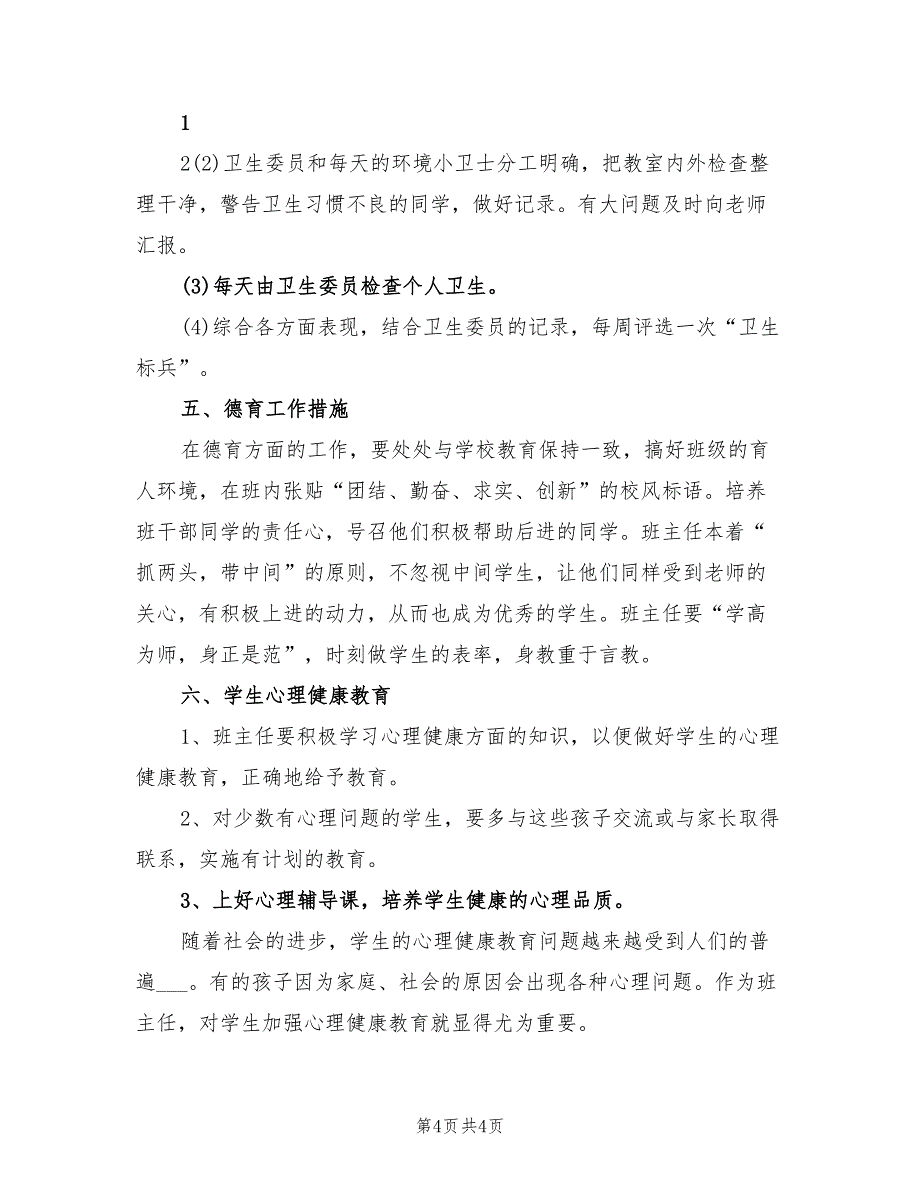 1
2(2)卫生委员和每天的环境小卫士分工明确，把教室内外检查整
理干净，警告卫生习惯不良的同学，做好记录。有大问题及时向老师
汇报。
(3)每天由卫生委员检查个人卫生。
(4)综合各方面表现，结合卫生委员的记录，每周评选一次“卫生
标兵”。
五、德育工作措施
在德育方面的工作，要处处与学校教育保持一致，搞好班级的育
人环境，在班内张贴“团结、勤奋、求实、创新”的校风标语。培养
班干部同学的责任心，号召他们积极帮助后进的同学。班主任本着“
抓两头，带中间”的原则，不忽视中间学生，让他们同样受到老师的
关心，有积极上进的动力，从而也成为优秀的学生。班主任要“学高
为师，身正是范”，时刻做学生的表率，身教重于言教。
六、学生心理健康教育
1、班主任要积极学习心理健康方面的知识，以便做好学生的心理
健康教育，正确地给予教育。
2、对少数有心理问题的学生，要多与这些孩子交流或与家长取得
联系，实施有计划的教育。
3、上好心理辅导课，培养学生健康的心理品质。
随着社会的进步，学生的心理健康教育问题越来越受到人们的普
遍___。有的孩子因为家庭、社会的原因会出现各种心理问题。作为班
主任，对学生加强心理健康教育就显得尤为重要。
第4页共4页